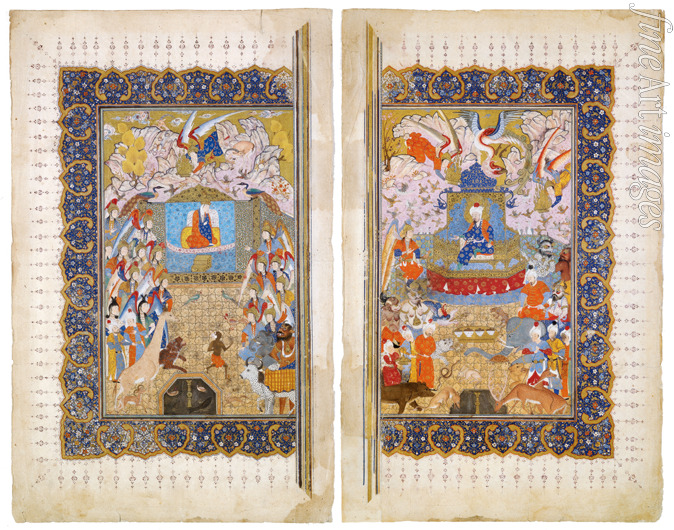 fine art images